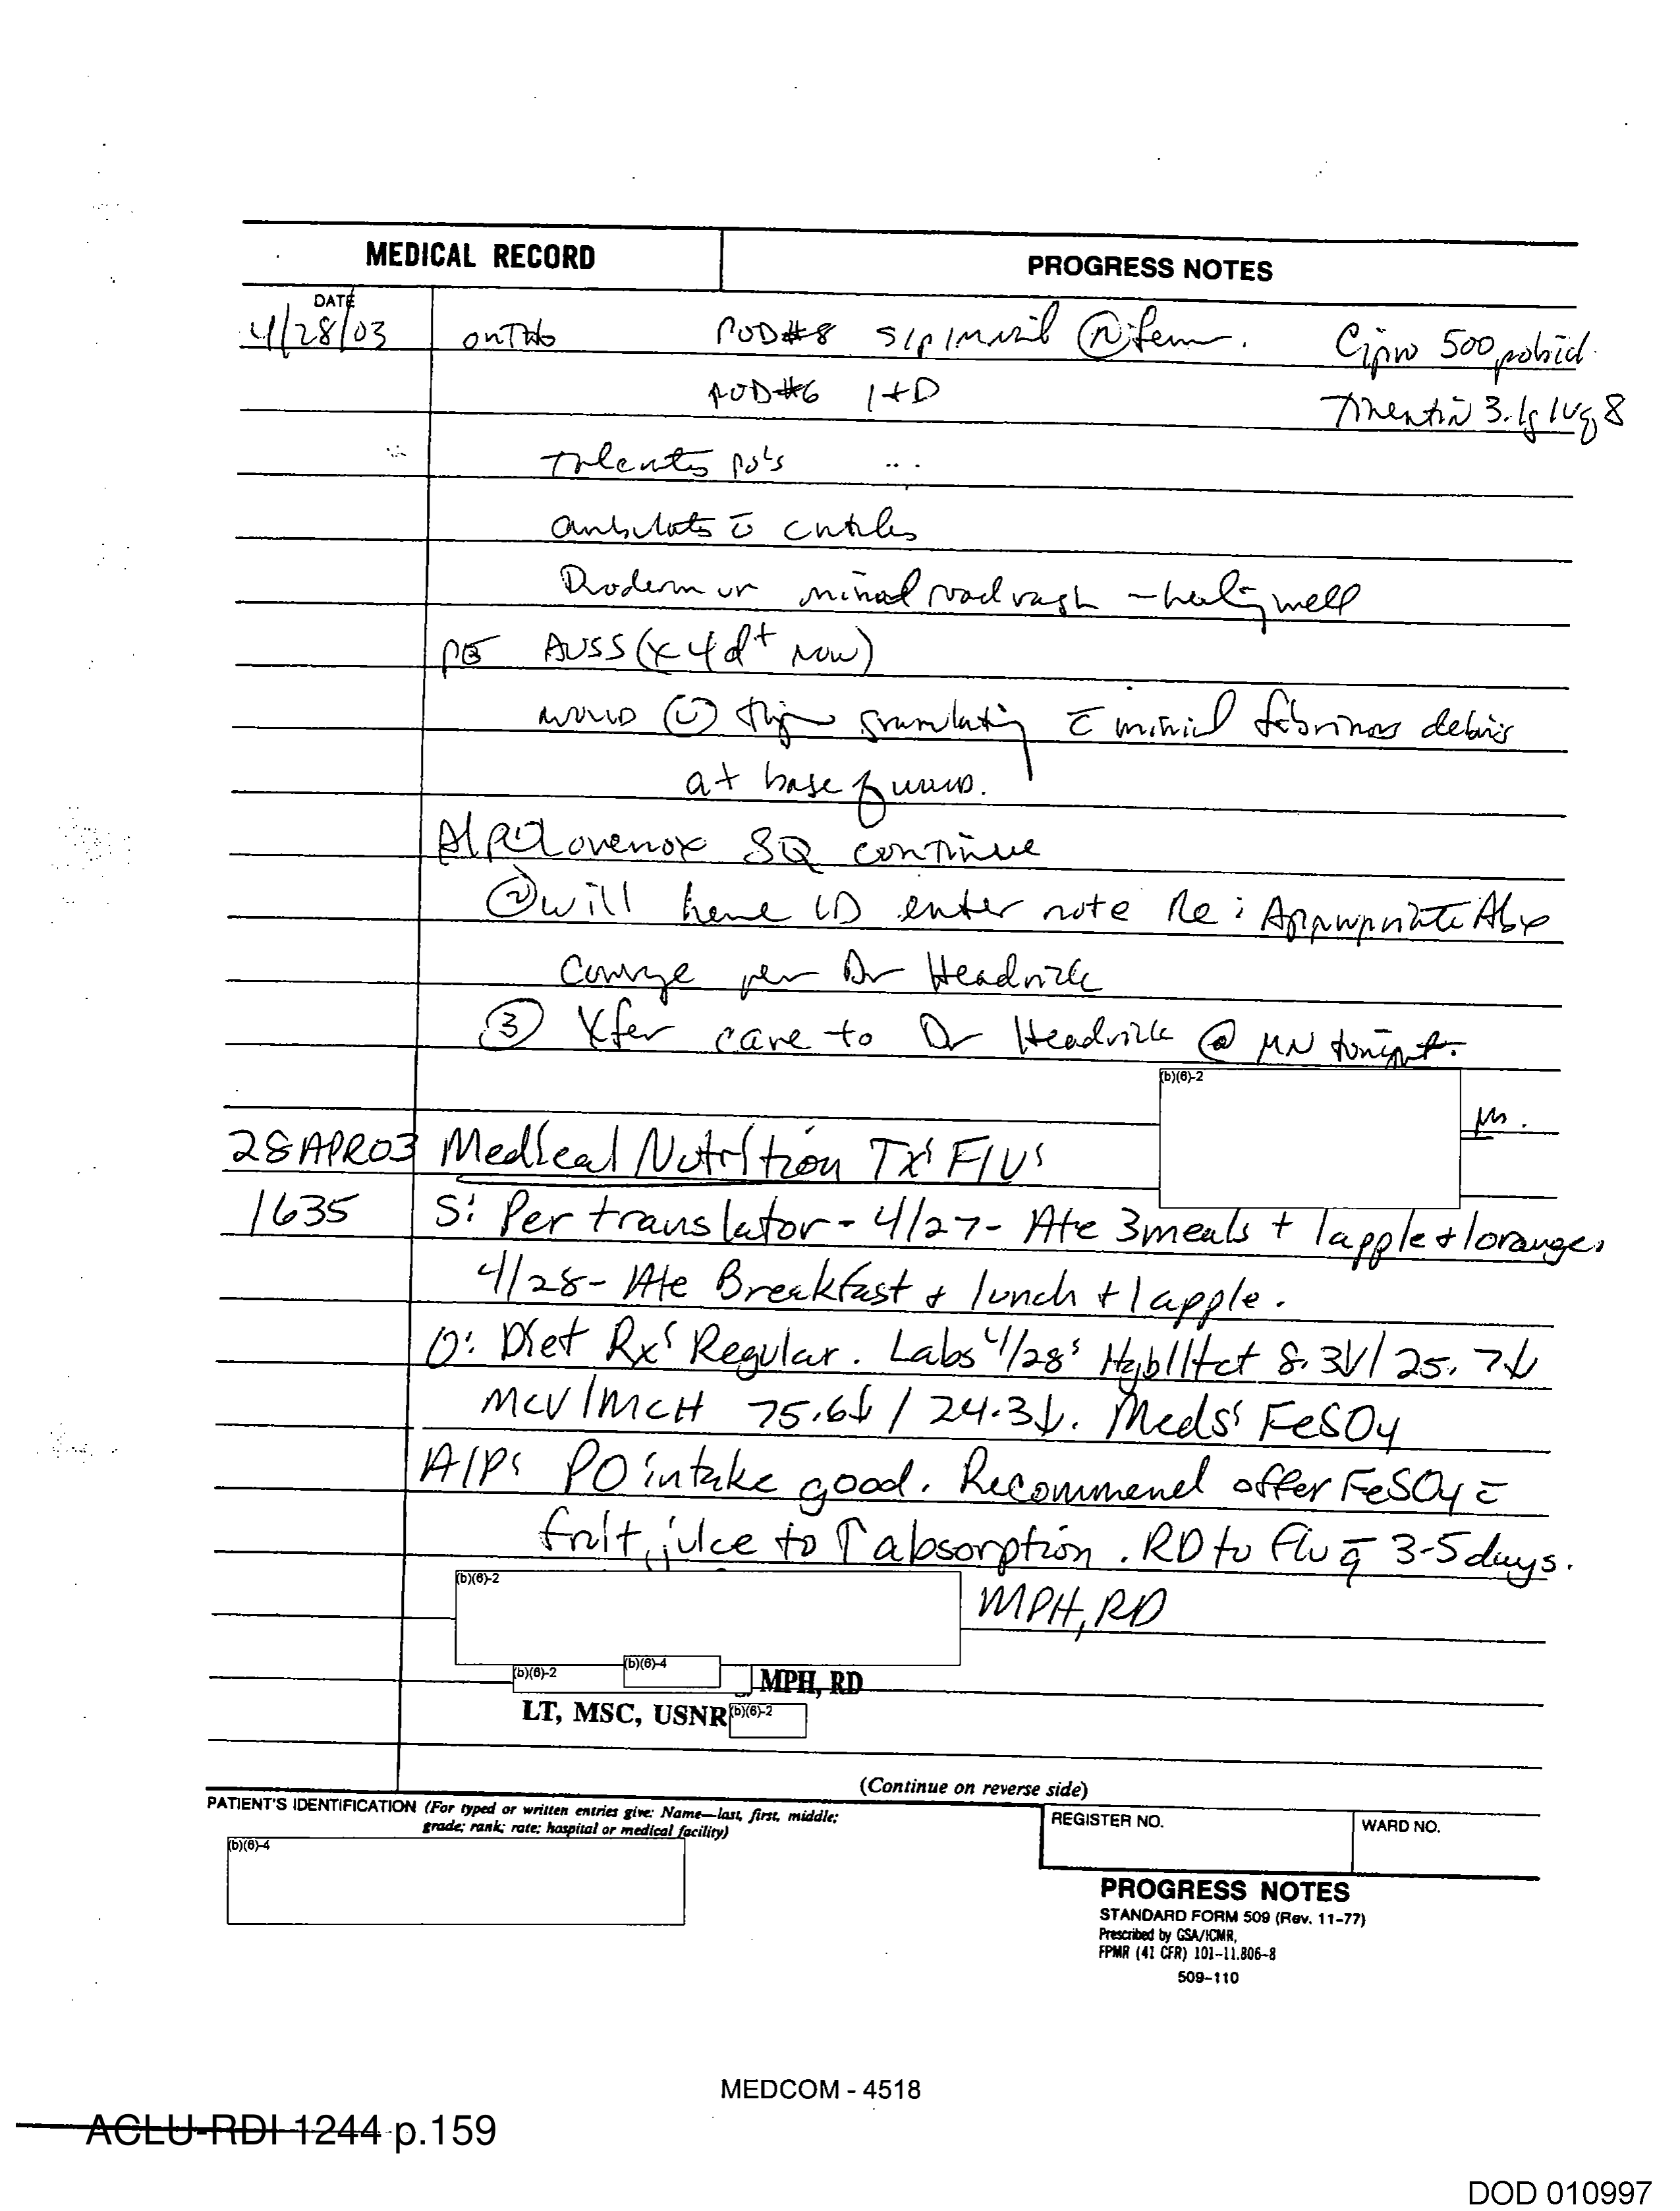 MEDICAL RECORD
PROGRESS NOTES
DATE
4/28/03 ortho POD#8 s/p IMNail femur. Cipro 500 po bid
POD#6 I+D Timentin 3.1g IV q 8
Tolerates po's
ambulates c̄ crutches
road rash - healing well
PE AVSS (x 4d+ now)
wound thigh granulating c̄ minimal fibrinous debris
at base of wound.
A/P ① Lovenox SQ continue
② will have ID enter note Re: Appropriate Abx
coverage per Dr Headrick
③ Xfer care to Dr Headrick @ MN tonight.
(b)(6)-2
28APR03 Medical Nutrition Tx: F/U:
1635 S: Per translator - 4/27 - Ate 3 meals + 1 apple + 1 orange.
4/28 - Ate Breakfast + lunch + 1 apple.
O: Diet Rx: Regular. Labs 4/28: Hgb/Hct 8.3↓/25.7↓
MCV/MCH 75.6↓/24.3↓. Meds: FeSO4
A/P: PO intake good. Recommend offer FeSO4 c̄
fruit juice to ↑ absorption. RD to f/u q̄ 3-5 days.
(b)(6)-2
MPH, RD
(b)(6)-2 (b)(6)-4 , MPH, RD
LT, MSC, USNR (b)(6)-2
(Continue on reverse side)
PATIENT'S IDENTIFICATION (For typed or written entries give: Name—last, first, middle;
grade; rank; rate; hospital or medical facility)
REGISTER NO.
WARD NO.
(b)(6)-4
PROGRESS NOTES
STANDARD FORM 509 (Rev. 11-77)
Prescribed by GSA/ICMR,
FPMR (41 CFR) 101-11.806-8
509-110
MEDCOM - 4518
ACLU-RDI 1244 p.159
DOD 010997